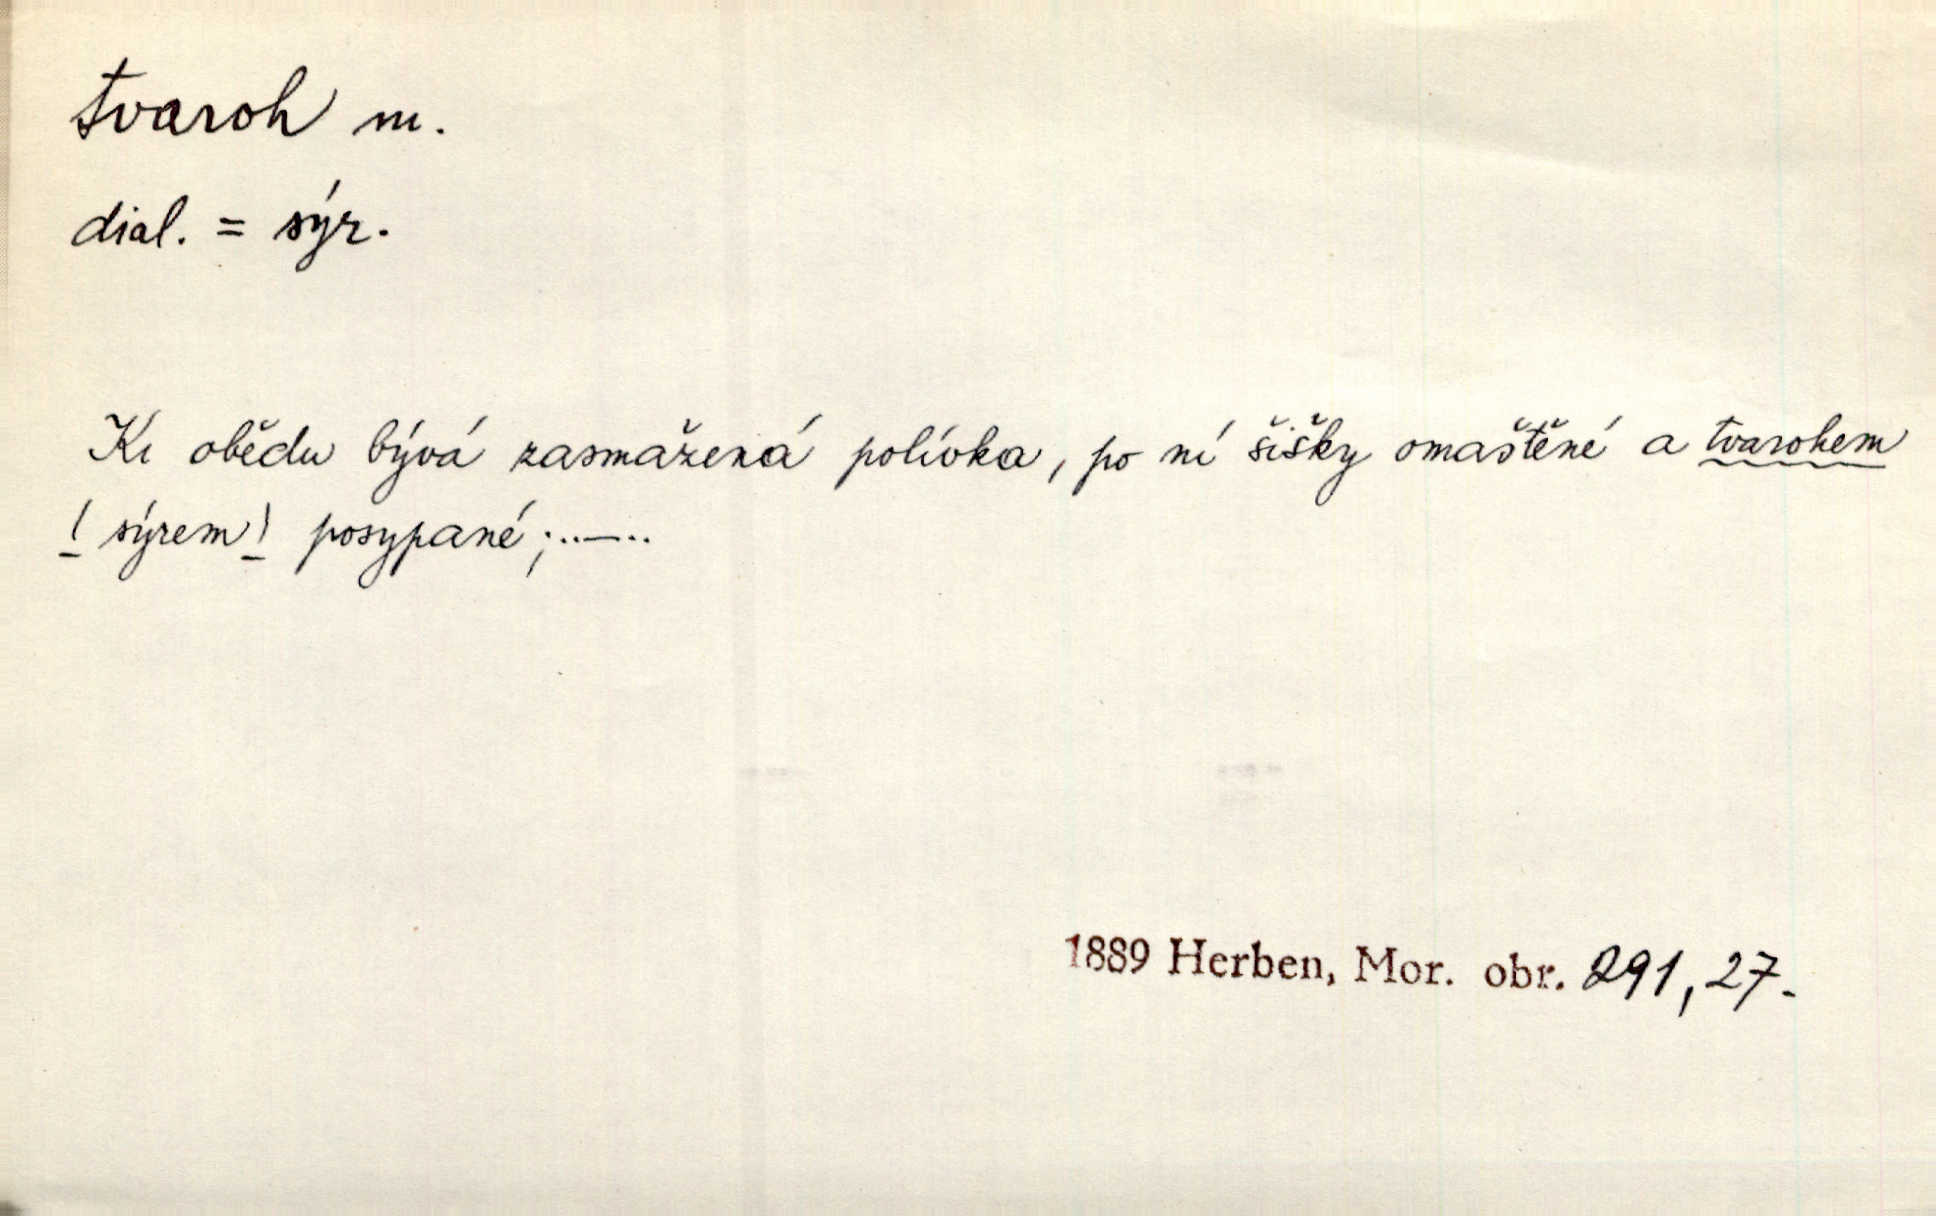 tvaroh m.
dial. = sýr.
K obědu bývá zasmažená polívka, po ní šišky omaštěné a tvarohem
(sýrem) posypané; ..—..
1889 Herben, Mor. obr. 291, 27.